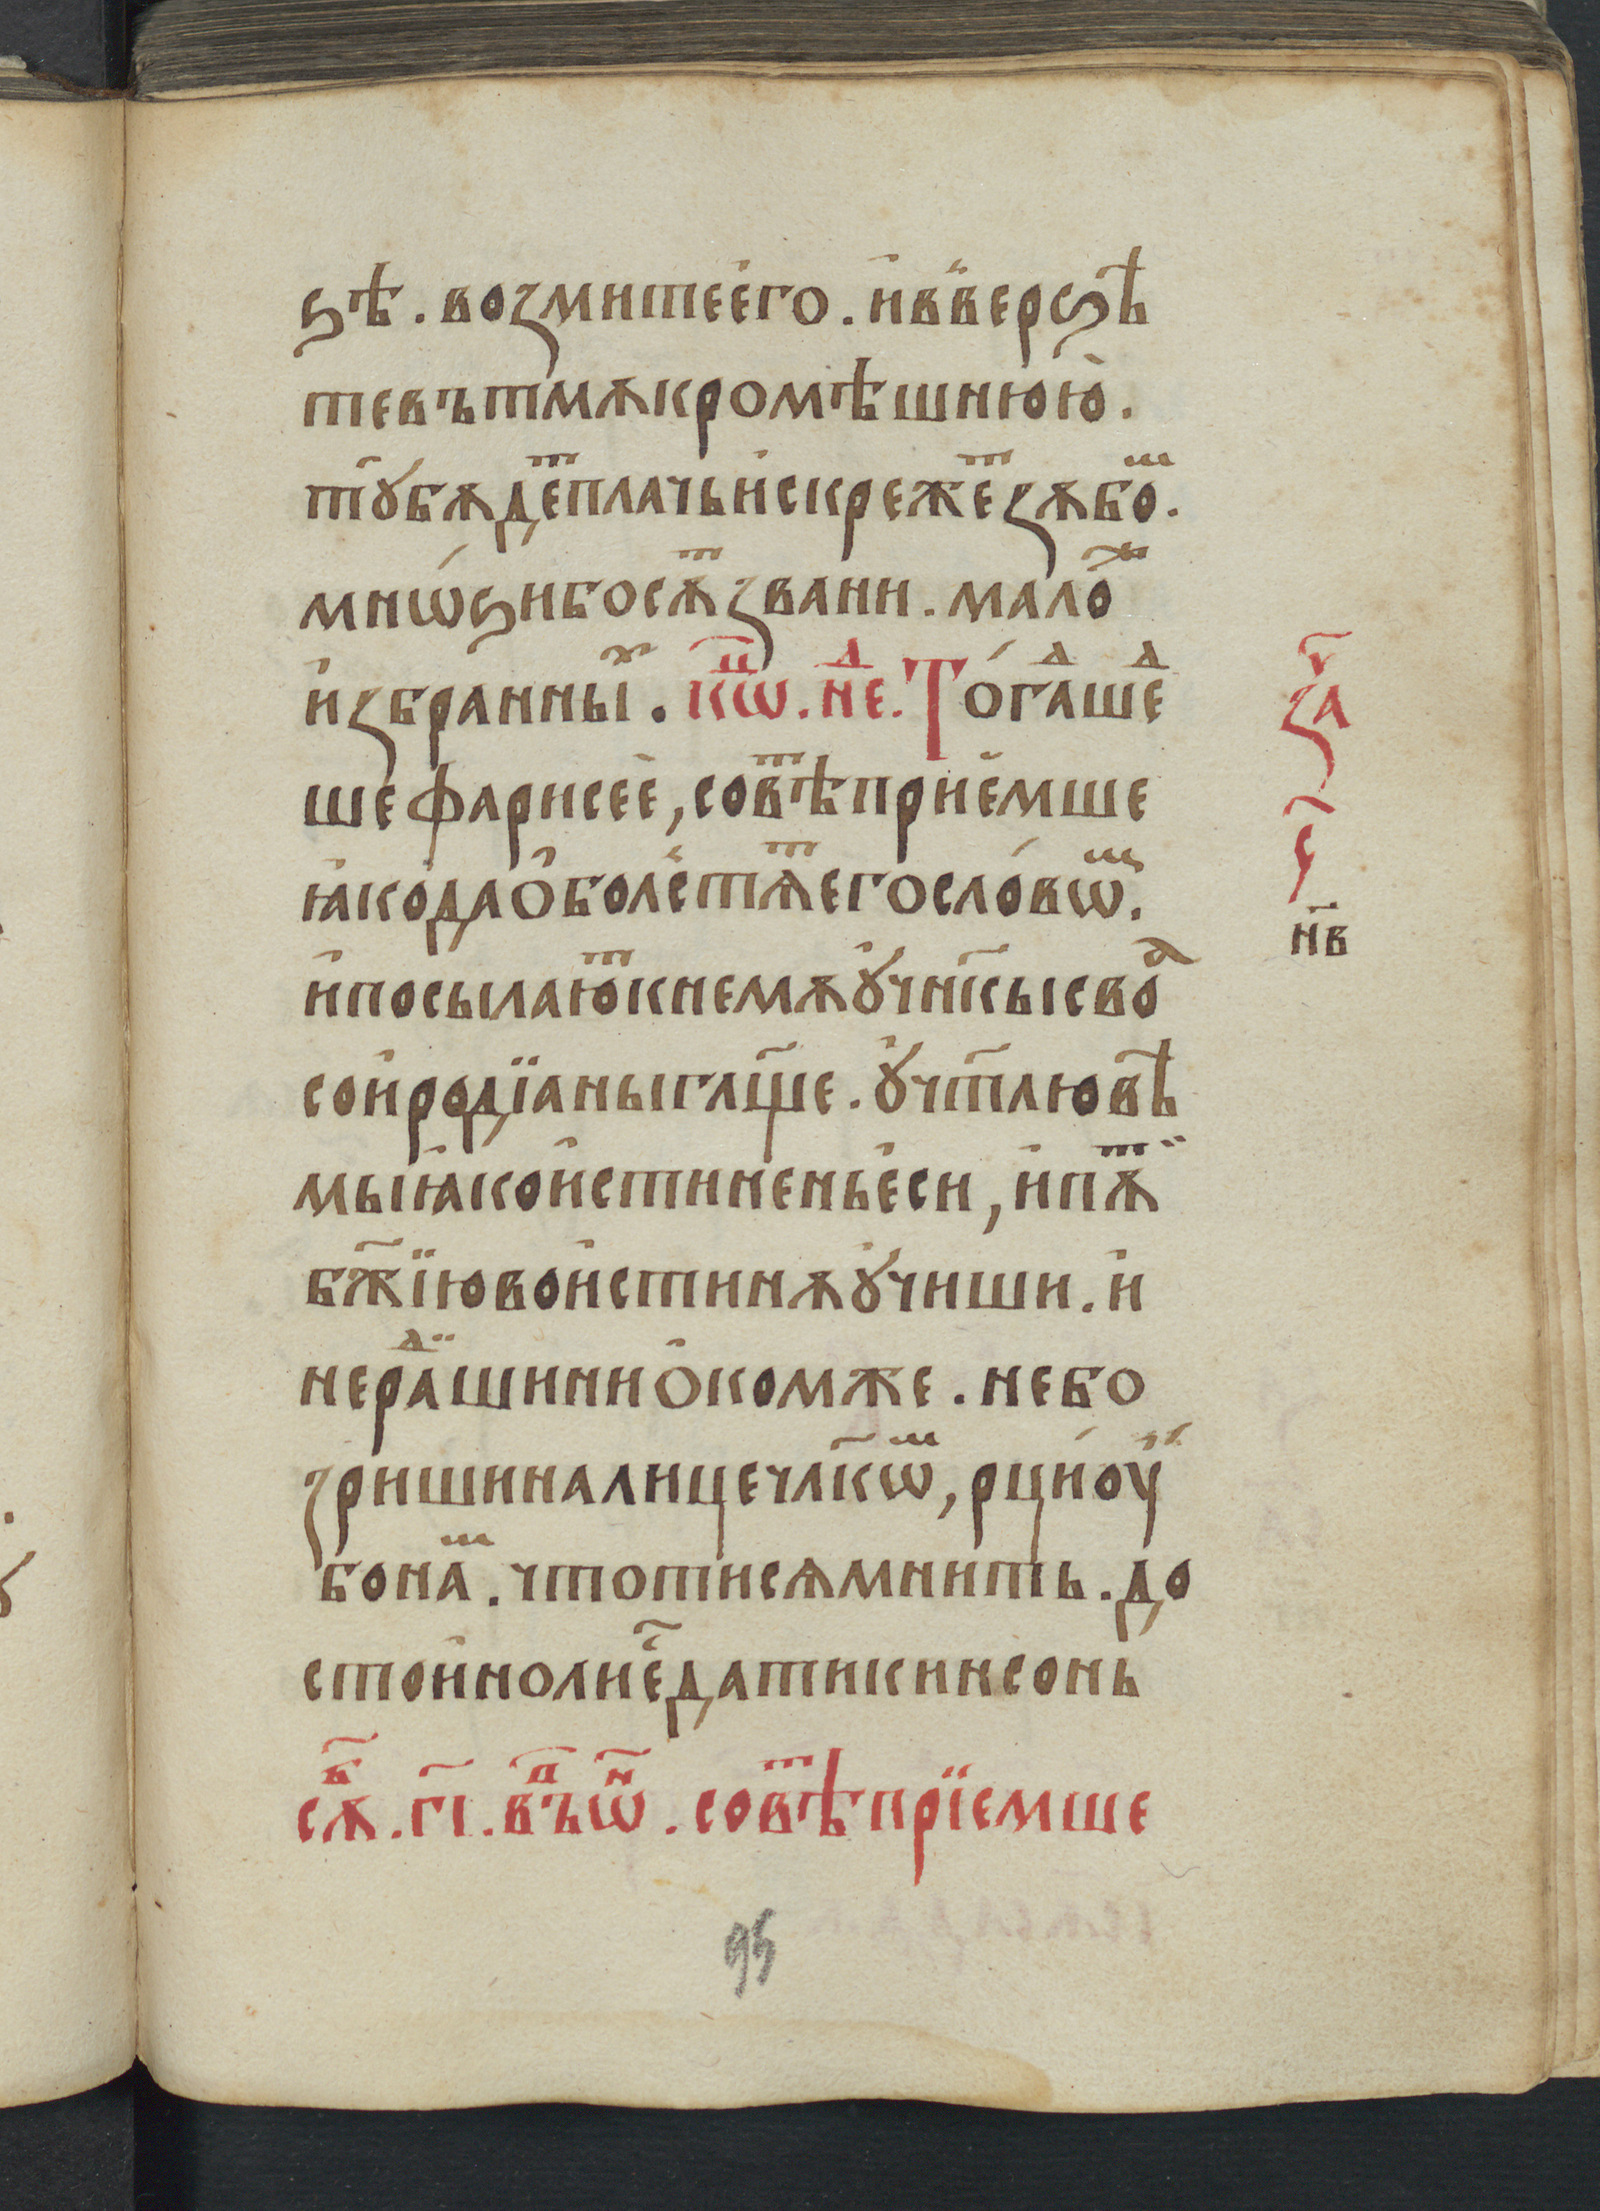 ѕѣ. возмитеего. ивверѕѣ
тевътмѫкромѣшнюю.
тꙋбѫдеⷮплачьискрежеⷮзѫбоⷨ.
мнѡѕибосѫⷮзвани. малоⷤ
избранныⷯ. кѡⷰ҇. неⷣ. Тогаⷣшеⷣ
шефарисее, совѣⷮприемше
ꙗкодаоболстѧⷮегословѡⷨ.
ипосылаюⷮкнемѫꙋчн҃кысвоⷶ
соиродїаныгл҃ще. ꙋчт҃лювѣ
мыꙗкоистиненьеси, ипѫⷮ
бж҃їювоистинѫꙋчиши. и
нераⷣшиниокомже. небо
зришиналицечл҃кѡⷨ, рциоу
бонаⷨ. чтотисѧмнить. до
стоинолие҃датикинсонь
сѫⷠ. г҃і. въⷣѡⷩ. совѣⷮпрїемше
за҃ч
ч҃
н҃в
95